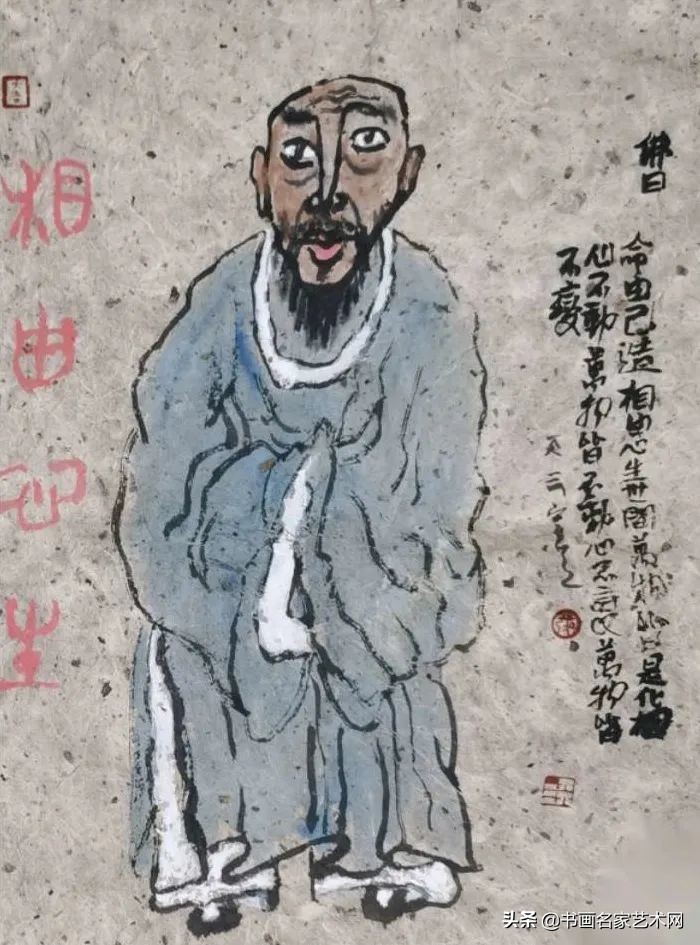 佛曰
命由己造相由心生世間萬物皆是化相
心不動萬物皆不動心不變萬物皆
不變
相由心生
头条 @书画名家艺术网